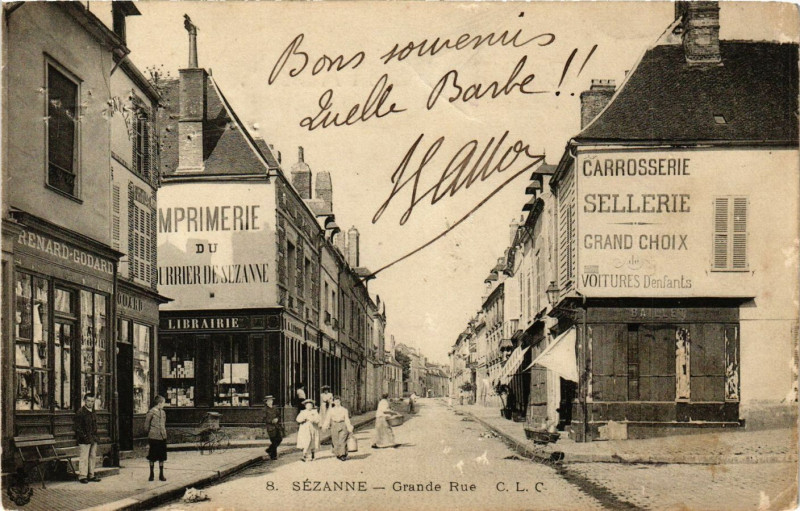 Bons souvenirs
Quelle Barbe !!
CARROSSERIE
SELLERIE
GRAND CHOIX
de
VOITURES D'enfants
MPRIMERIE
DU
URRIER DE SÉZANNE
RENARD-GODARD
ODARD
LIBRAIRIE
8. SÉZANNE — Grande Rue C. L. C.